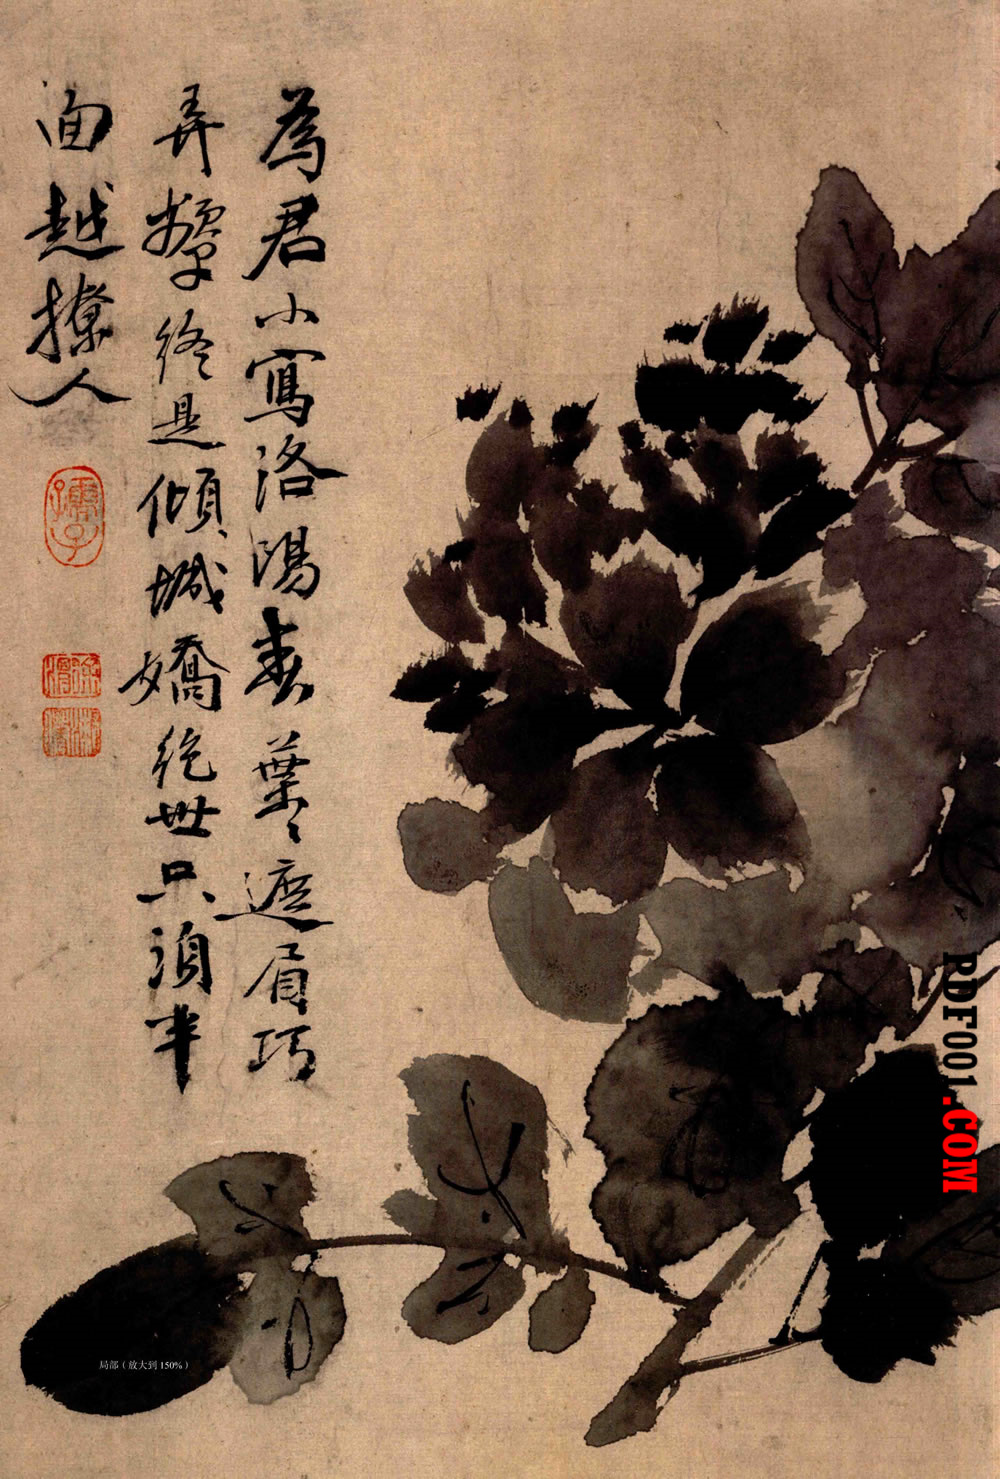 為君小寫洛陽春葉〻遮眉巧
弄顰終是傾城嬌絕世只須半
面越撩人
徐渭
局部（放大到 150%）
PDF001.COM